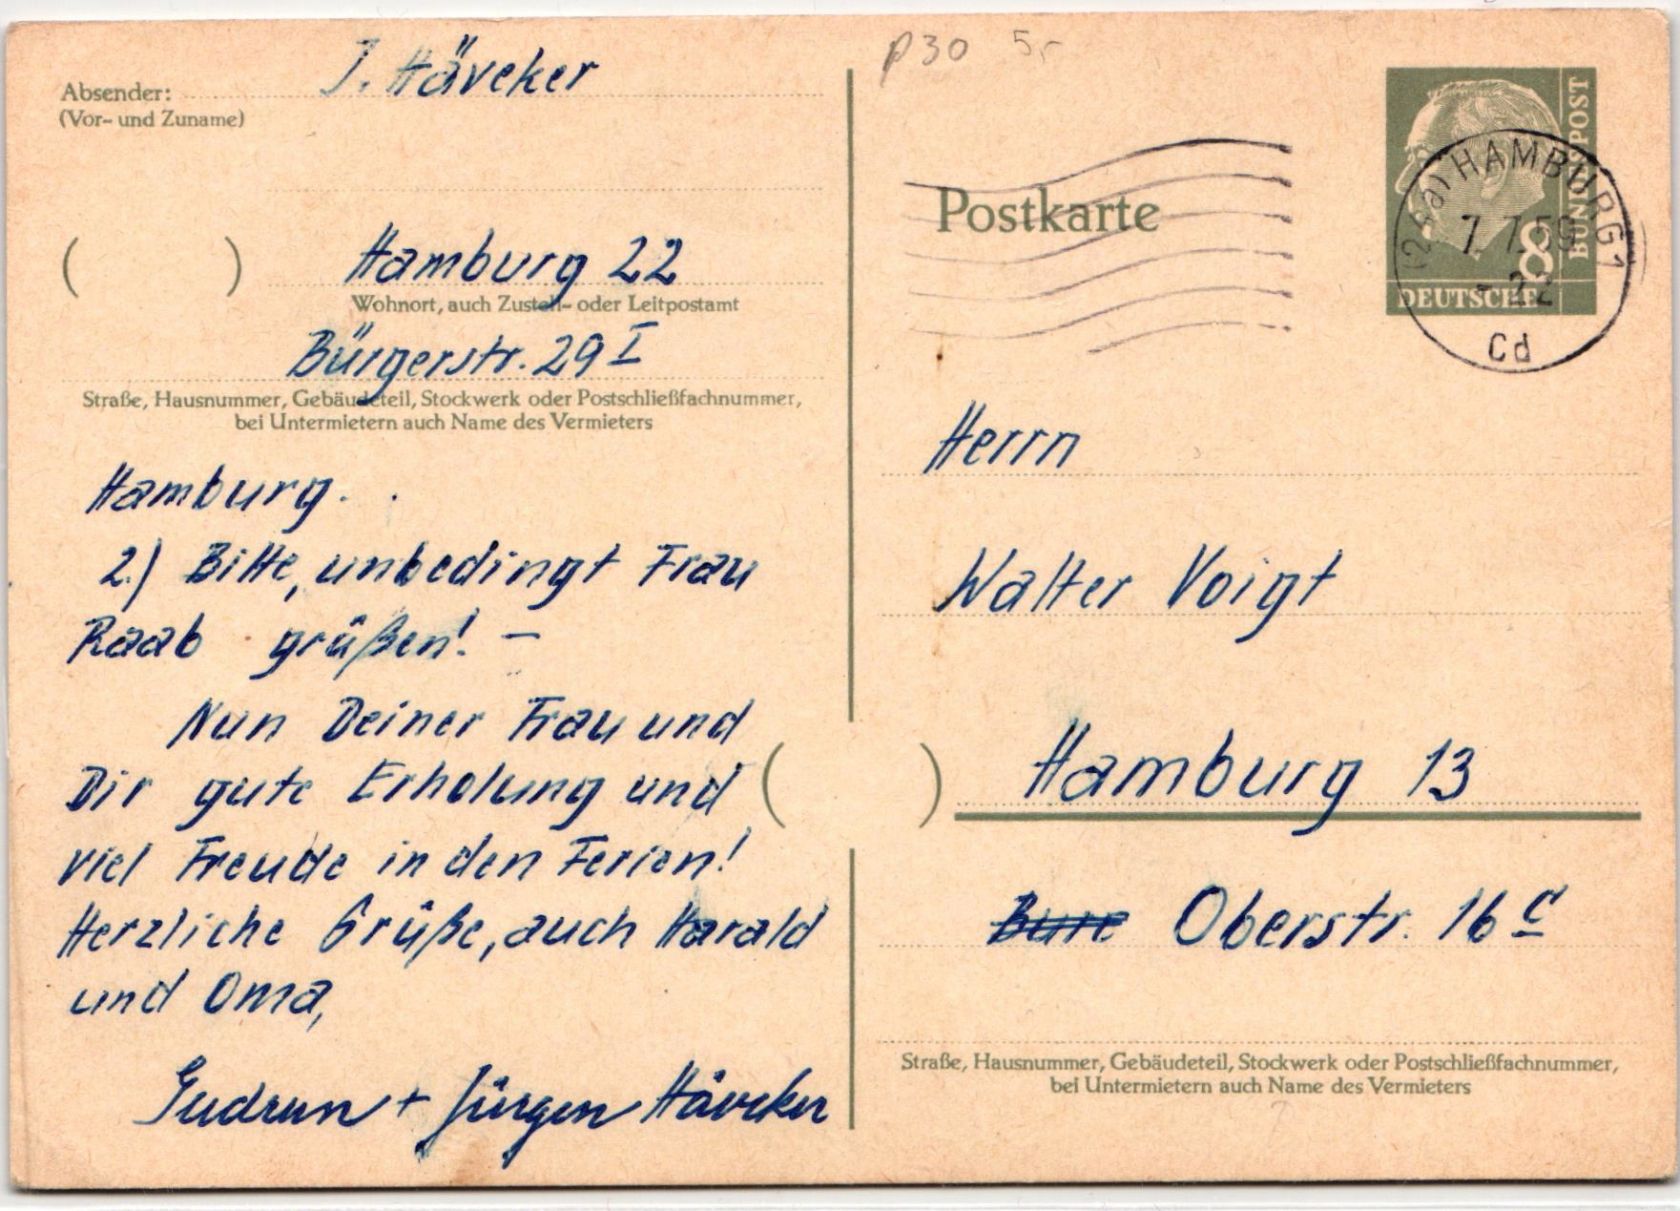 P30 5,-
Absender: J. Häveker
(Vor- und Zuname)
( ) Hamburg 22
Wohnort, auch Zustell- oder Leitpostamt
Bürgerstr. 29 I
Straße, Hausnummer, Gebäudeteil, Stockwerk oder Postschließfachnummer,
bei Untermietern auch Name des Vermieters
Hamburg.
2.) Bitte, unbedingt Frau
Raab grüßen! –
Nun Deiner Frau und
Dir gute Erholung und
viel Freude in den Ferien!
Herzliche Grüße, auch Harald
und Oma,
Gudrun + Jürgen Häveker
Postkarte
DEUTSCHE
BUNDESPOST
8
(24a) HAMBURG 1
7.7.59
- 22
cd
Herrn
Walter Voigt
( ) Hamburg 13
Oberstr. 16 c
Straße, Hausnummer, Gebäudeteil, Stockwerk oder Postschließfachnummer,
bei Untermietern auch Name des Vermieters